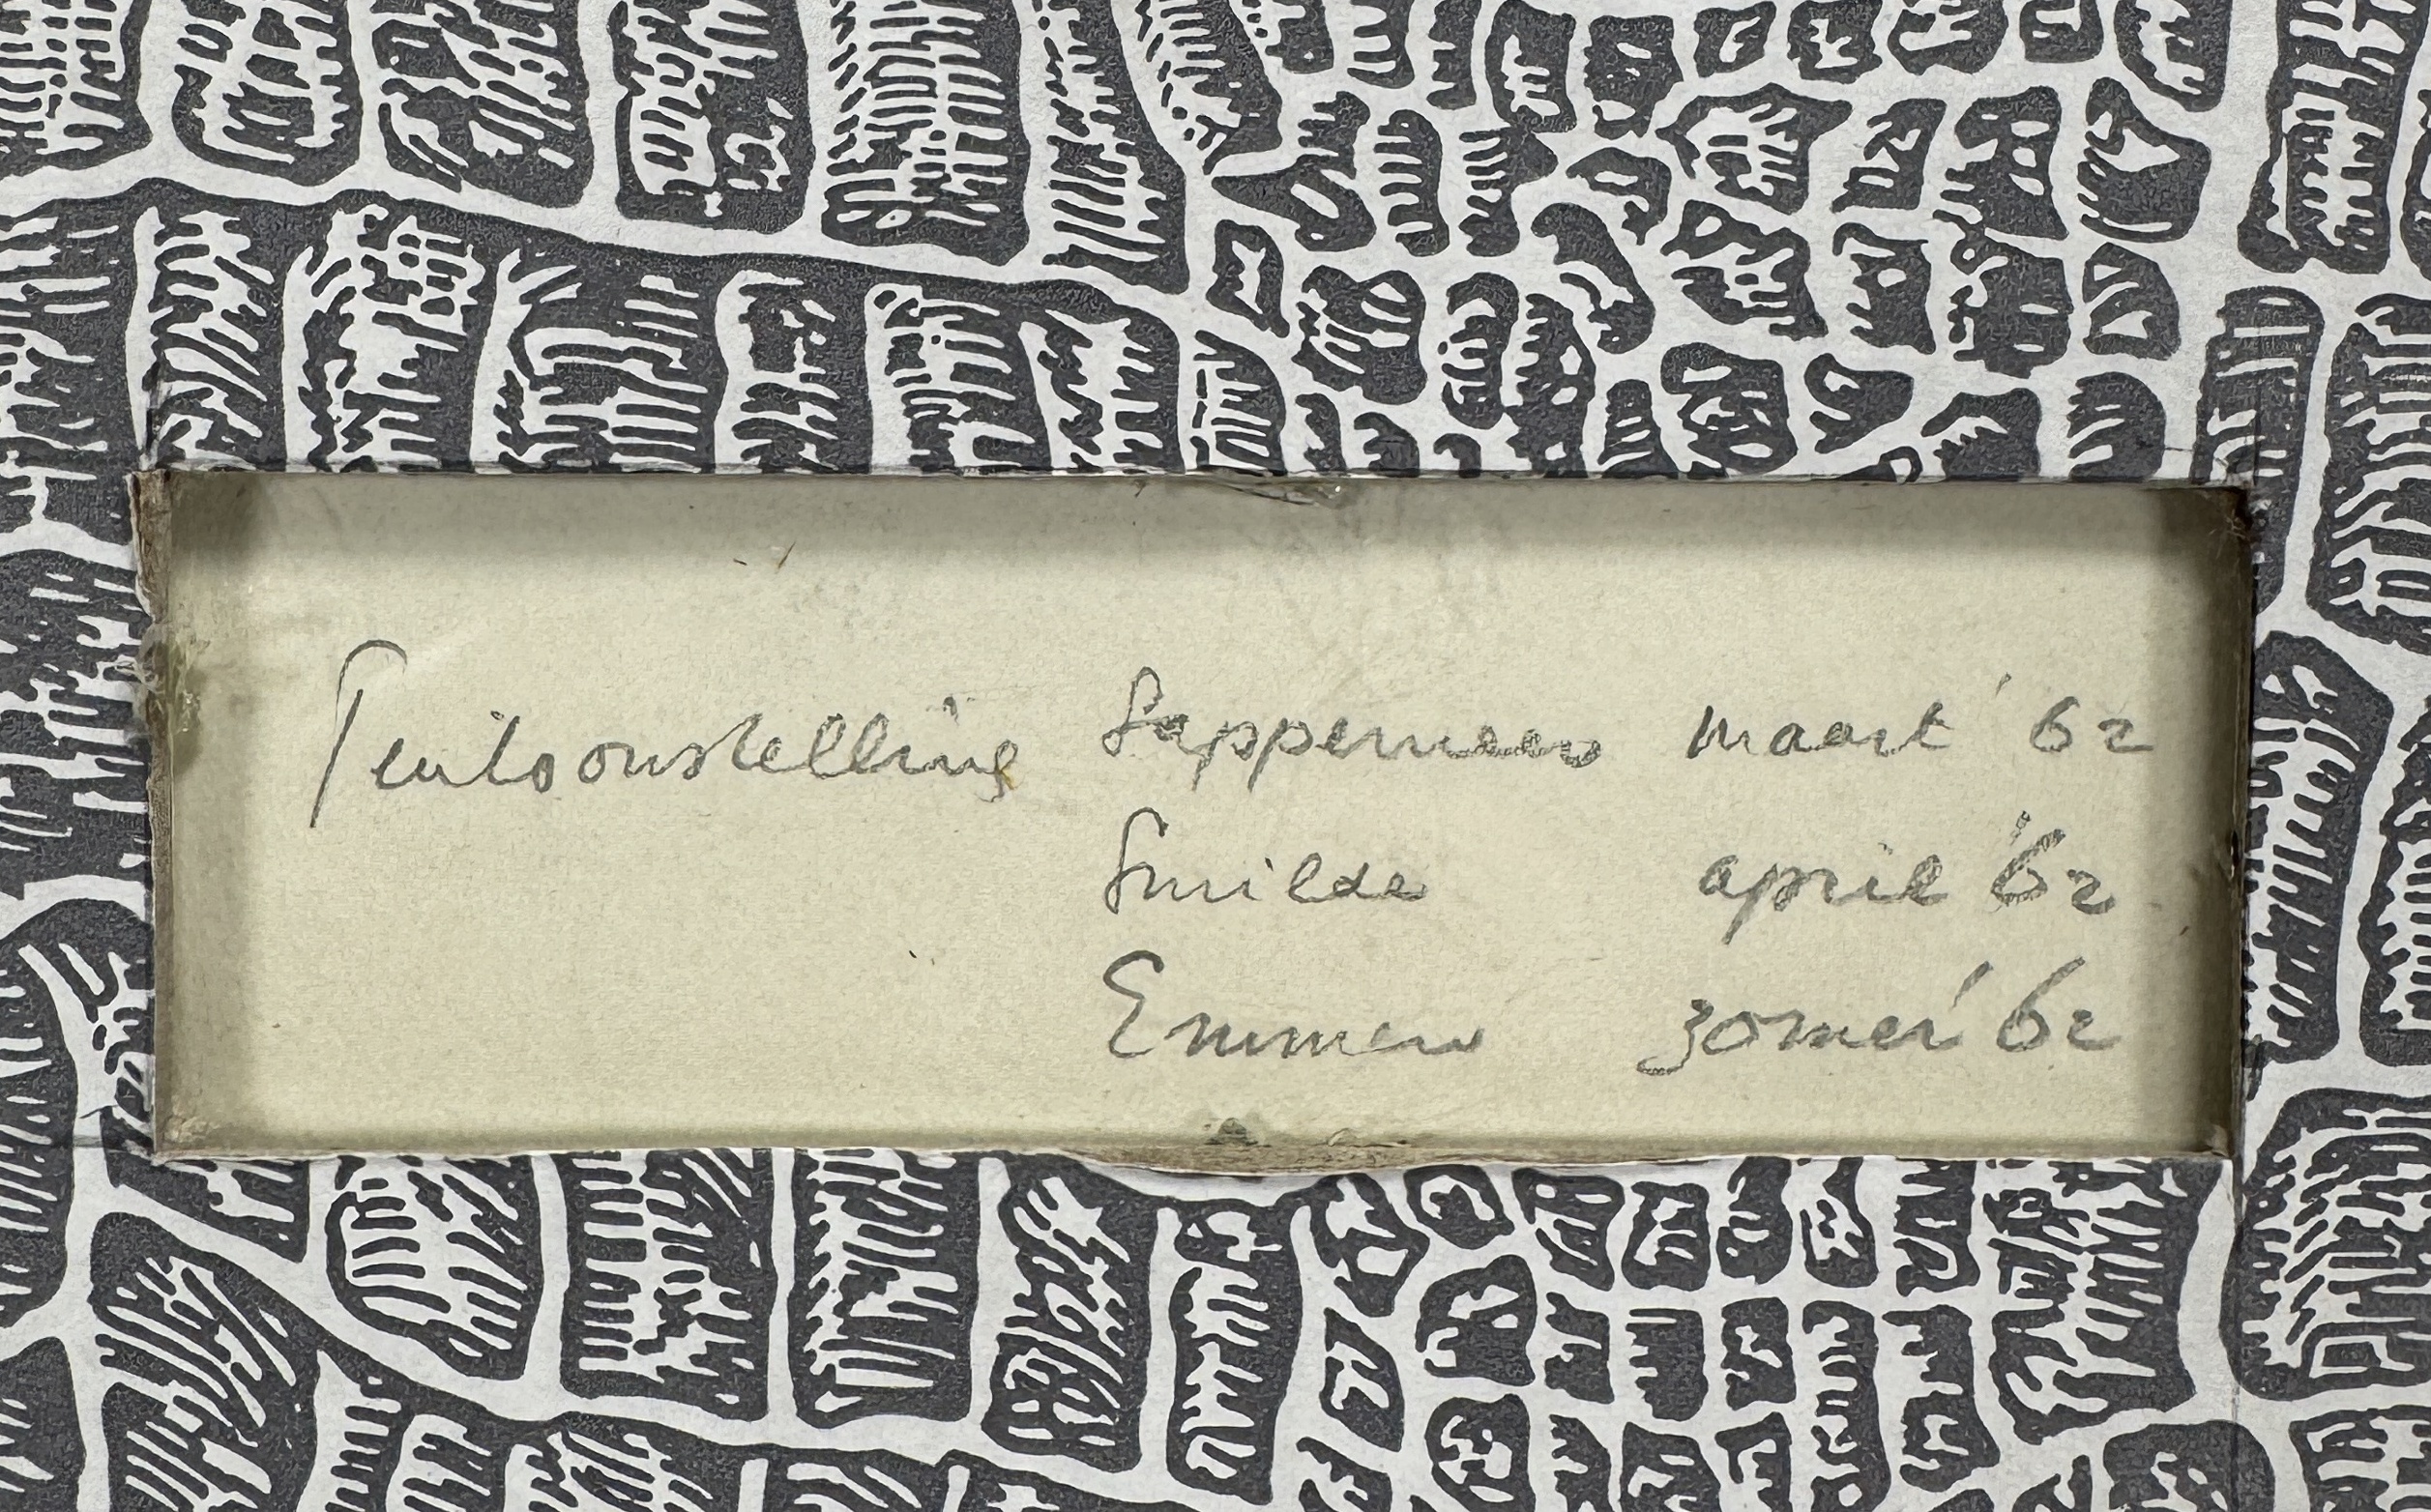 Tentoonstelling Sappemeer maart '62
Smilde april '62
Emmen zomer '62